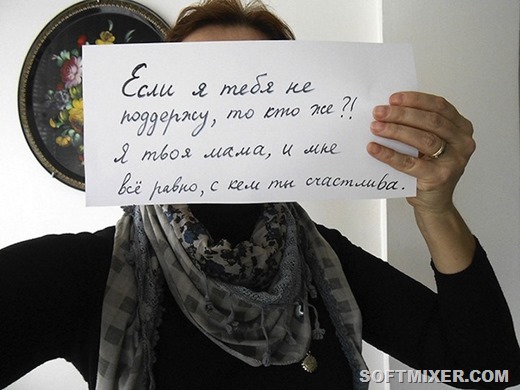 Если я тебя не
поддержу, то кто же?!
Я твоя мама, и мне
всё равно, с кем ты счастлива.
SOFTMIXER.COM